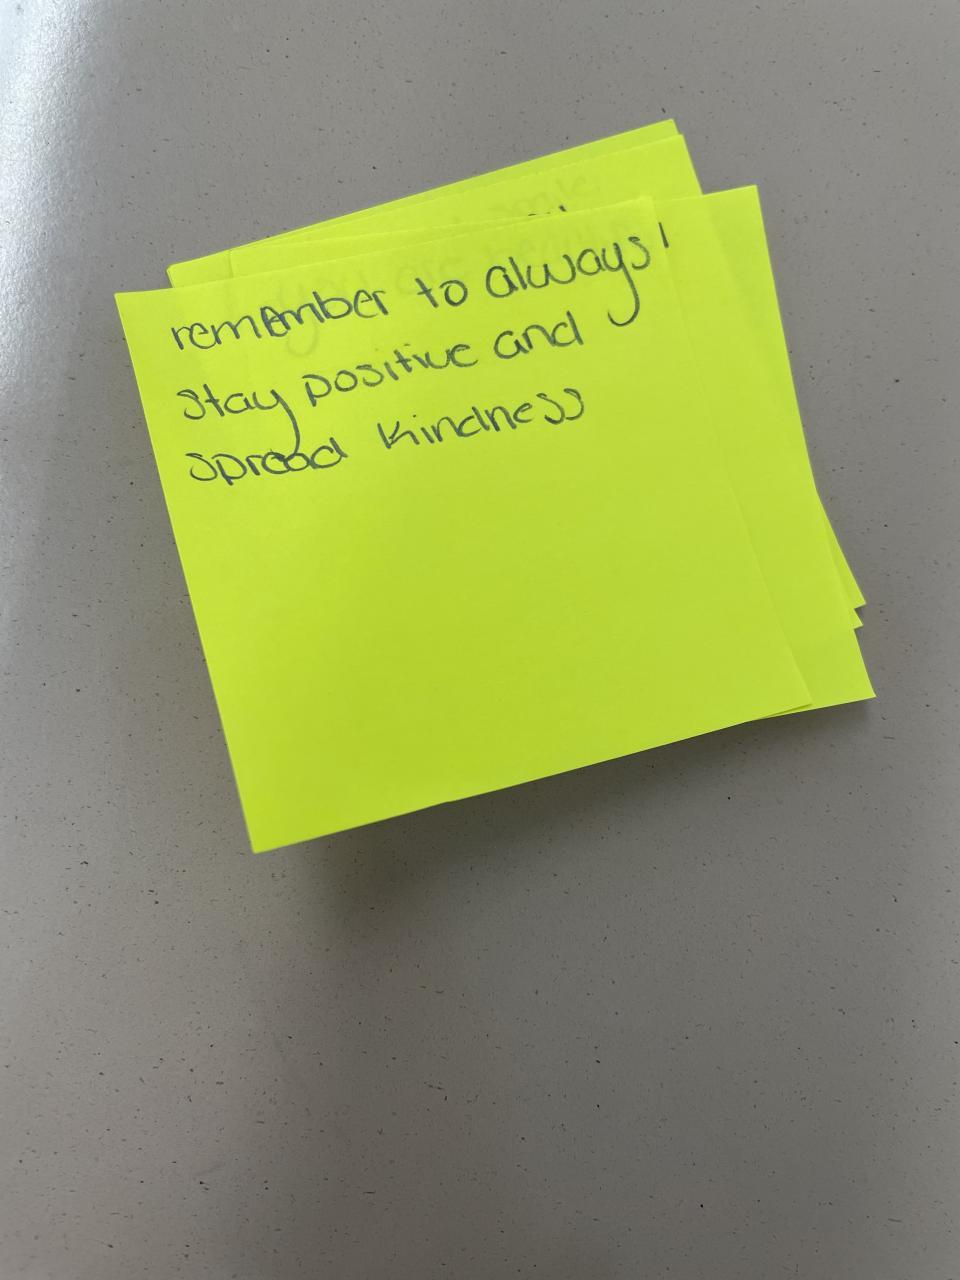 remember to always
stay positive and
spread kindness